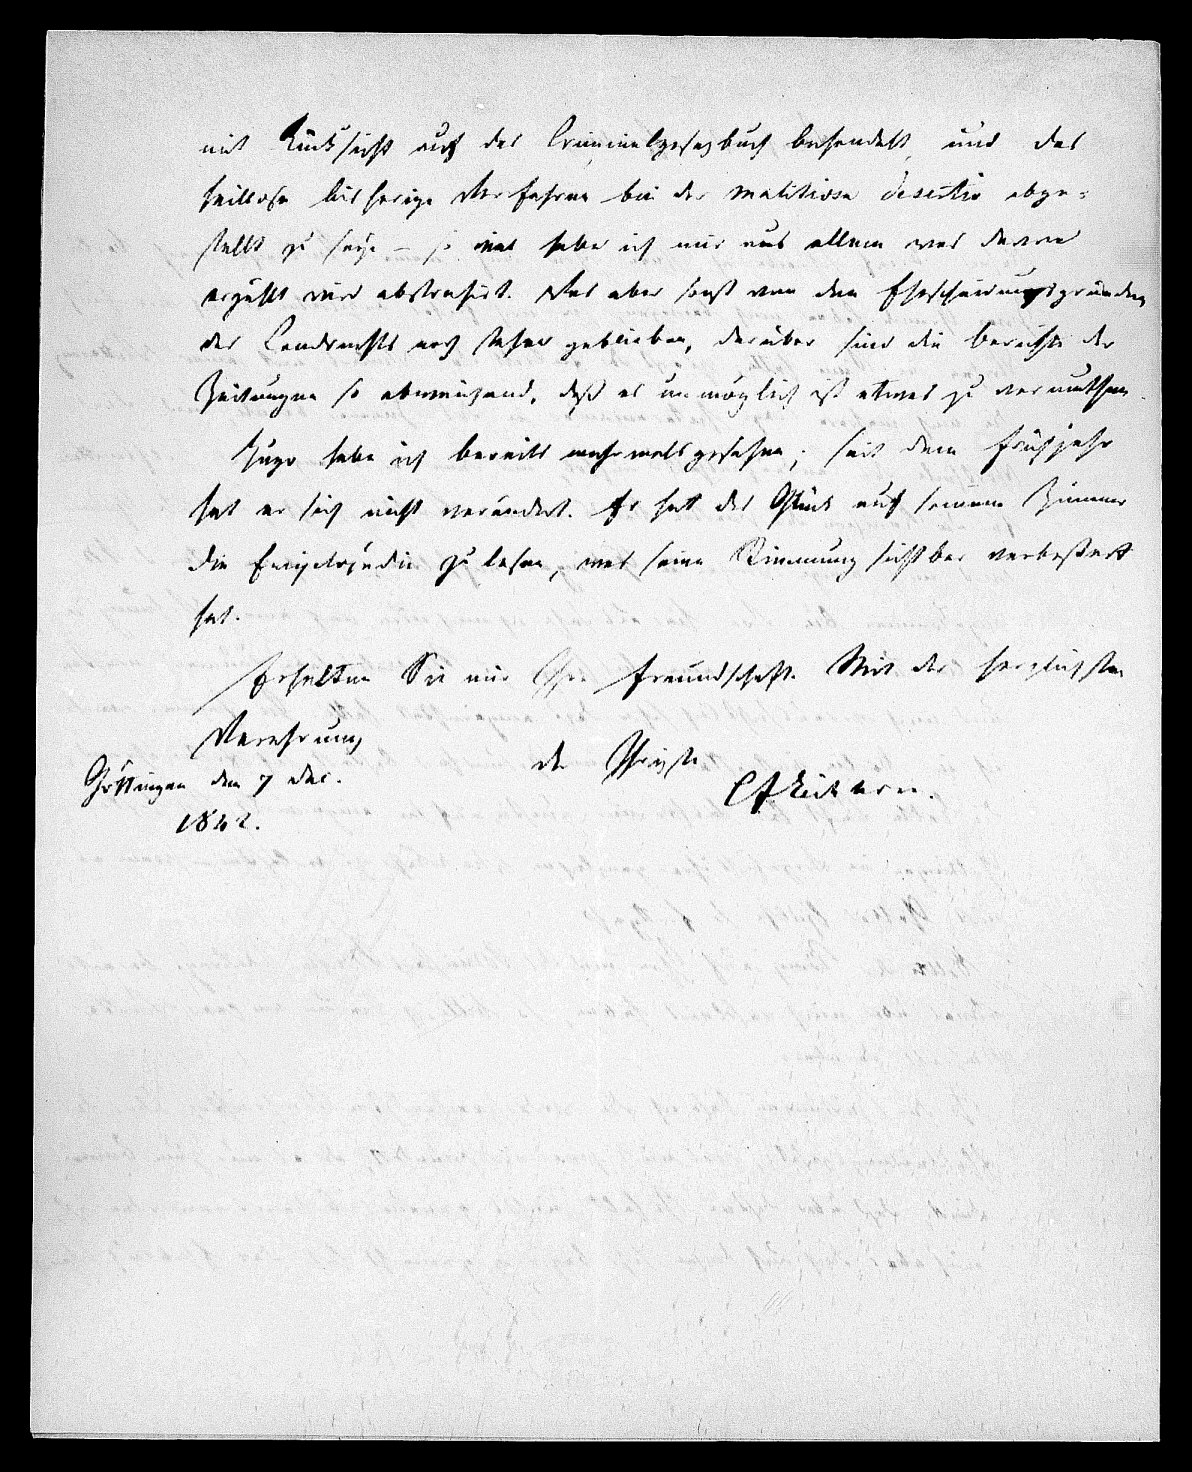 mit Rücksicht auf das Criminalgesezbuch behandelt und das
heillose bisherige Verfahren bei der malitiosa desertio abge-
stellt zu seyn – so viel habe ich mir aus allem was davon
erzählt wird abstrahirt. Was aber sonst von den Ehescheidungsgründen
des Landrechts noch stehen geblieben, darüber sind die berichte der
Zeitungen so abweichend, daß es unmöglich ist etwas zu vermuthen.
Hugo habe ich bereits mehrmals gesehen; seit dem Frühjahr
hat er sich nicht verändert. Er hat das Glück auf seinem Zimmer
die Encyclopädie zu lesen, was seine Stimmung sichtbar verbessert
hat.
Erhalten Sie mir Ihre Freundschaft. Mit der herzlichsten
Verehrung
der Ihrige
Göttingen den 7 Dec.
CFEichhorn.
1842.